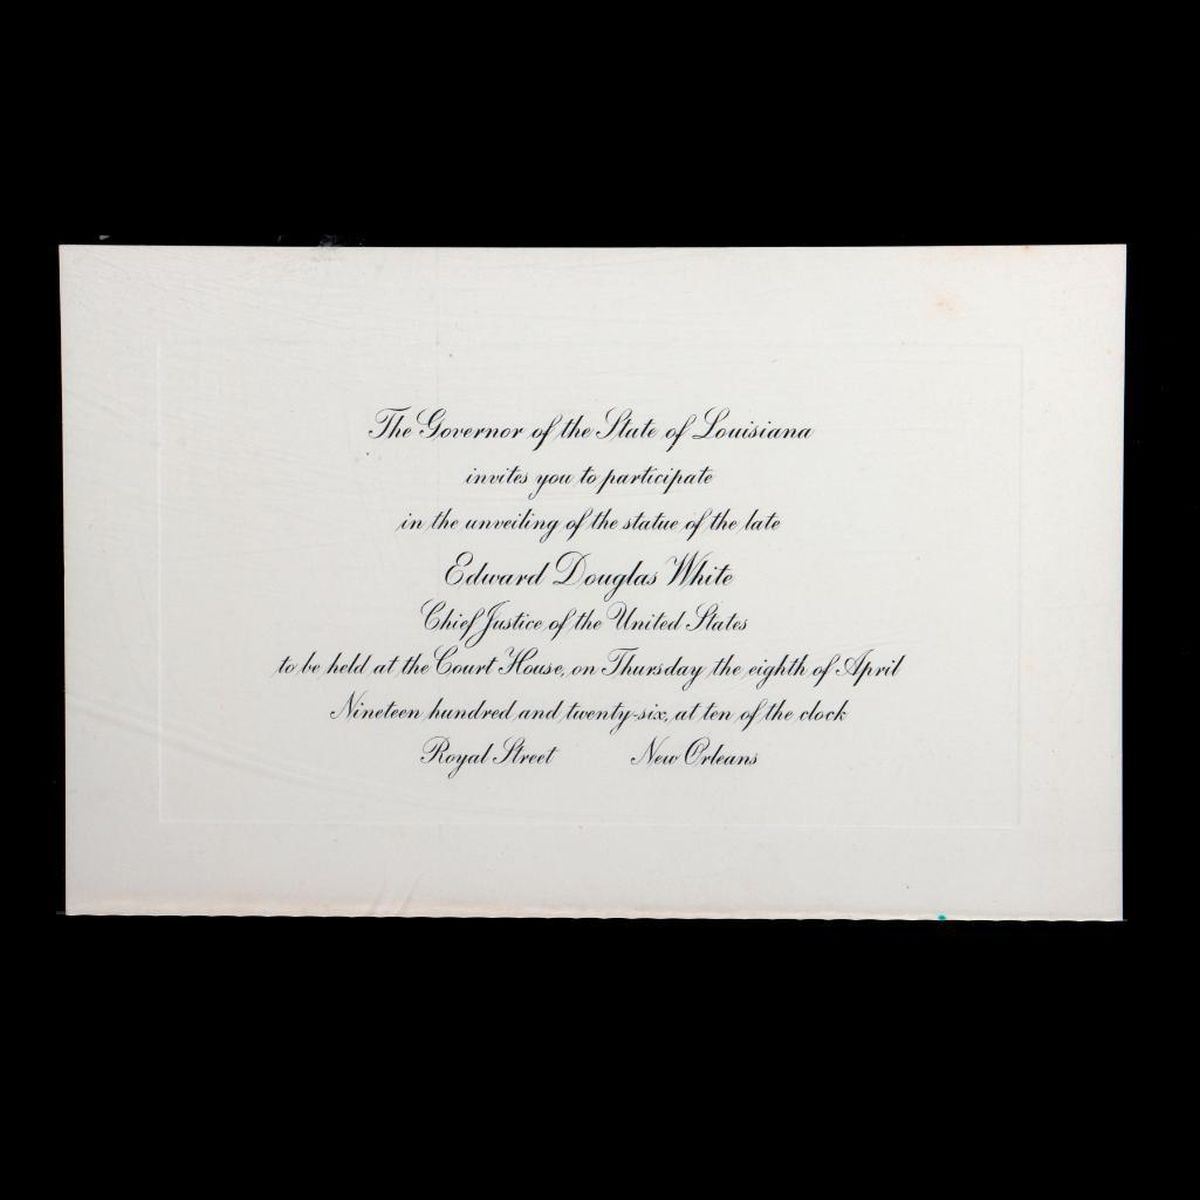 The Governor of the State of Louisiana
invites you to participate
in the unveiling of the statue of the late
Edward Douglas White
Chief Justice of the United States
to be held at the Court House, on Thursday the eighth of April
Nineteen hundred and twenty-six, at ten of the clock
Royal Street New Orleans